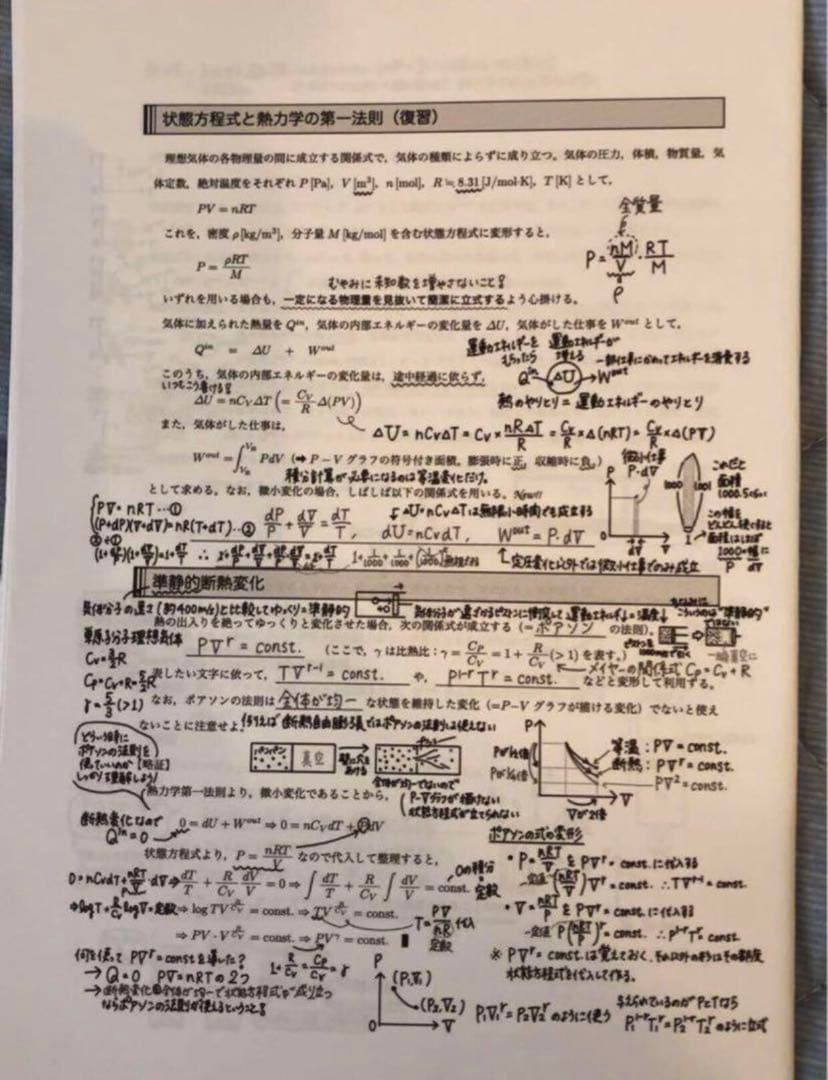 状態方程式と熱力学の第一法則（復習）
理想気体の各物理量の間に成立する関係式で，気体の種類によらずに成り立つ。気体の圧力，体積，物質量，気
体定数，絶対温度をそれぞれ P [Pa]，V [m³]，n [mol]，R ≒ 8.31 [J/mol·K]，T [K] として，
PV = nRT
全質量
これを，密度 ρ [kg/m³]，分子量 M [kg/mol] を含む状態方程式に変形すると，
P = nM/V · RT/M
ρ
P = ρRT/M
むやみに未知数を増やさないこと!
いずれを用いる場合も，一定になる物理量を見抜いて簡潔に立式するよう心掛ける。
気体に加えられた熱量を Qⁱⁿ，気体の内部エネルギーの変化量を ΔU，気体がした仕事を Wᵒᵘᵗ として，
Qⁱⁿ = ΔU + Wᵒᵘᵗ
運動エネルギーを もらったら
運動エネルギーが 増える
一部仕事にかわってエネルギーを消費する
Qⁱⁿ → ΔU → Wᵒᵘᵗ
熱のやりとり = 運動エネルギーのやりとり
このうち，気体の内部エネルギーの変化量は，途中経過に依らず，
いつもこう書ける!
ΔU = nC_VΔT (= C_V/R Δ(PV))
ΔU = nCvΔT = Cv × nRΔT/R = Cv/R × Δ(nRT) = Cv/R × Δ(PV)
また，気体がした仕事は，
Wᵒᵘᵗ = ∫ PdV (➡ P − V グラフの符号付き面積。膨張時に正，収縮時に負。)
積分計算が必要になるのは等温変化だけ。
微小仕事
P·dV
P
V
dV
これだと
面積
1000
1001
この幅を
どんどん
として求める。なお，微小変化の場合，しばしば以下の関係式を用いる。New!!
PV = nRT … ①
(P+dP)(V+dV) = nR(T+dT) … ②
dP/P + dV/V = dT/T，
ΔU = nCvΔTは無限小時間でも成立する
dU = nCvdT，
Wᵒᵘᵗ = P·dV
定圧変化以外では微小仕事でのみ成立
準静的断熱変化
気体分子の速さ (約400m/s) と比較してゆっくり = 準静的
熱の出入りを絶ってゆっくりと変化させた場合，次の関係式が成立する（= ポアソン の法則）。
単原子分子理想気体
Cv = 3/2 R
PVʳ = const. （ここで，γ は比熱比：γ = C_P/C_V = 1 + R/C_V (> 1) を表す。）
メイヤーの関係式 Cp = Cv + R
Cp = Cv + R = 5/2 R
表したい文字に依って，TVʳ⁻¹ = const. や，P¹⁻ʳTʳ = const. などと変形して利用する。
r = 5/3 (>1)
なお，ポアソンの法則は 全体が均一 な状態を維持した変化（=P−V グラフが描ける変化）でないと使え
ないことに注意せよ！
例えば断熱自由膨張ではポアソンの法則は使えない
どういう時に
ポアソンの法則を
使っていいのか
しっかり理解しよう!
【略証】
パンパン
真空
壁に穴を
あける
全体が均一でないので
P-Vグラフが描けない
状態方程式が立てられない
P
V
等温：PV = const.
断熱：PVʳ = const.
PV² = const.
Vが2倍
熱力学第一法則より，微小変化であることから，
断熱変化なので
Qⁱⁿ = 0
0 = dU + Wᵒᵘᵗ ⇒ 0 = nC_VdT + PdV
状態方程式より，P = nRT/V なので代入して整理すると，
0 = nCvdT + nRT/V · dV
⇒ dT/T + R/C_V dV/V = 0 ⇒ ∫ dT/T + R/C_V ∫ dV/V = const.
0の積分
定数
⇒ logT + R/Cv logV = 定数
⇒ log TV^(R/C_V) = const. ⇒ TV^(R/C_V) = const.
T = PV/nR 代入
定数
⇒ PV · V^(R/C_V) = const. ⇒ PV^γ = const. ■
1 + R/Cv = Cp/Cv = r
ポアソンの式の変形
• P = nRT/V を PVʳ = const. に代入する
(nRT/V)Vʳ = const. ∴ TVʳ⁻¹ = const.
• V = nRT/P を PVʳ = const. に代入する
P(nRT/P)ʳ = const. ∴ P¹⁻ʳTʳ = const.
※ PVʳ = const. は覚えておく、それ以外のほうはその都度
状態方程式を代入して作る。
何を使って PVʳ = constを導いた?
→ Q = 0 PV = nRT の2つ
→ 断熱変化中全体が均一で状態方程式が成り立つ
ならポアソンの法則が使えるということ!
P
(P₁V₁)
(P₂,V₂)
0
V
P₁V₁ʳ = P₂V₂ʳ のように使う
与えられているのがPとTなら
P₁¹⁻ʳT₁ʳ = P₂¹⁻ʳT₂ʳ のように立式